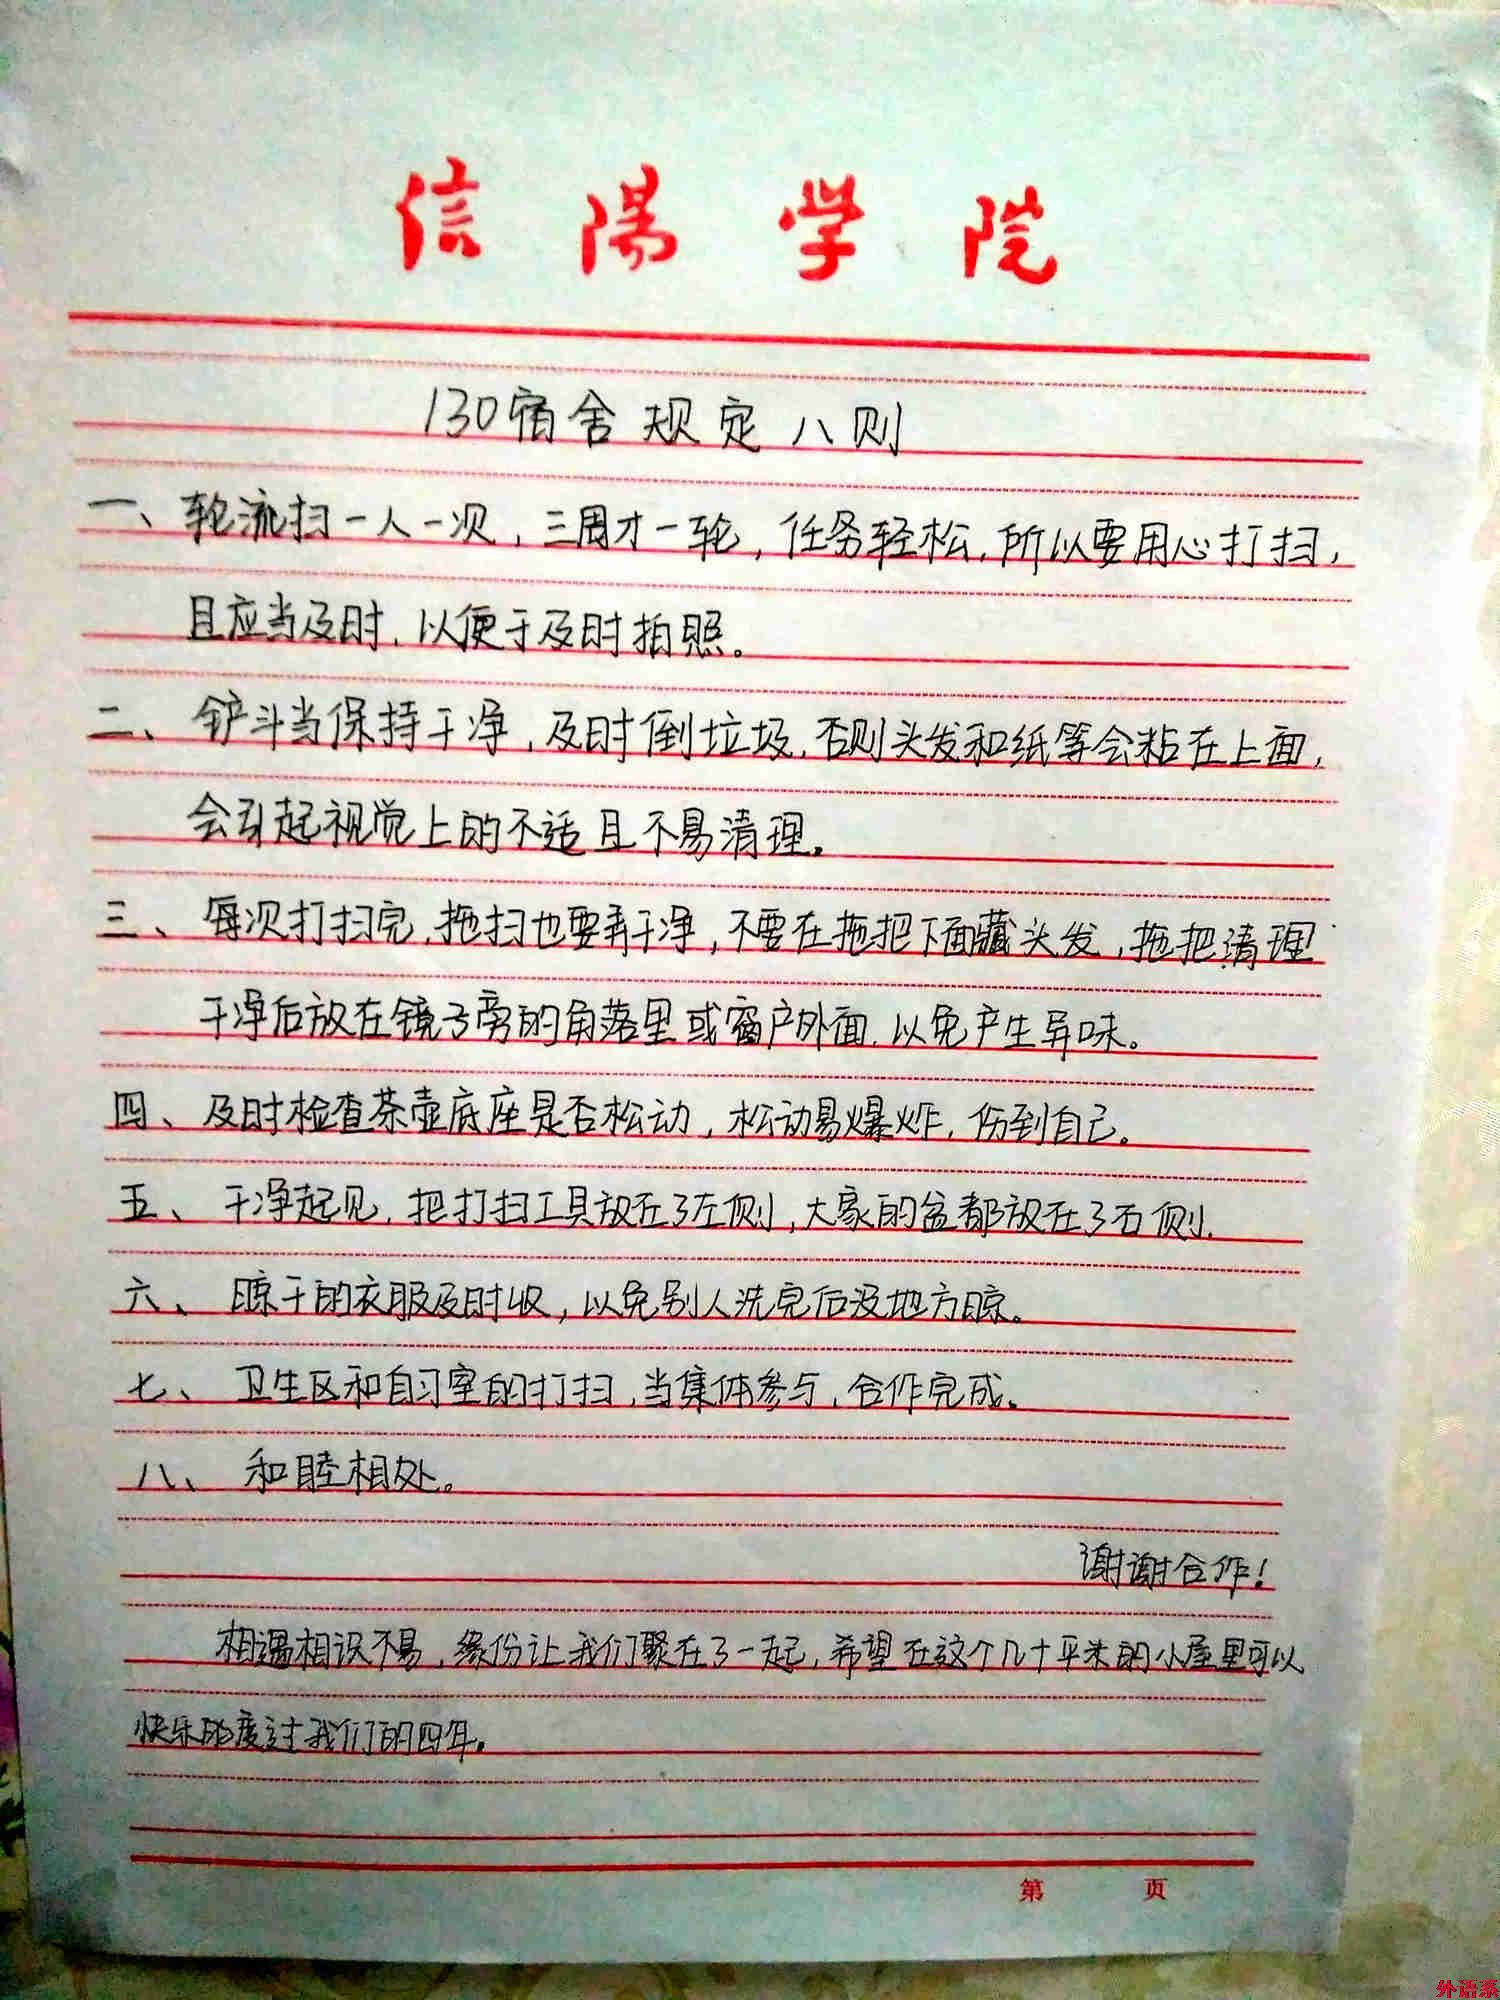 信陽学院
130宿舍规定八则
一、轮流扫一人一次，三周才一轮，任务轻松，所以要用心打扫，
且应当及时，以便于及时拍照。
二、铲斗当保持干净，及时倒垃圾，否则头发和纸等会粘在上面，
会引起视觉上的不适且不易清理。
三、每次打扫完，拖扫也要弄干净，不要在拖把下面藏头发，拖把清理
干净后放在镜子旁的角落里或窗户外面，以免产生异味。
四、及时检查茶壶底座是否松动，松动易爆炸，伤到自己。
五、干净起见，把打扫工具放在了左侧，大家的盆都放在了右侧.
六、晾干的衣服及时收，以免别人洗完后没地方晾。
七、卫生区和自习室的打扫，当集体参与，合作完成。
八、和睦相处。
谢谢合作！
相遇相识不易，缘份让我们聚在了一起，希望在这个几十平米的小屋里可以
快乐的度过我们的四年。
第 页
外语系